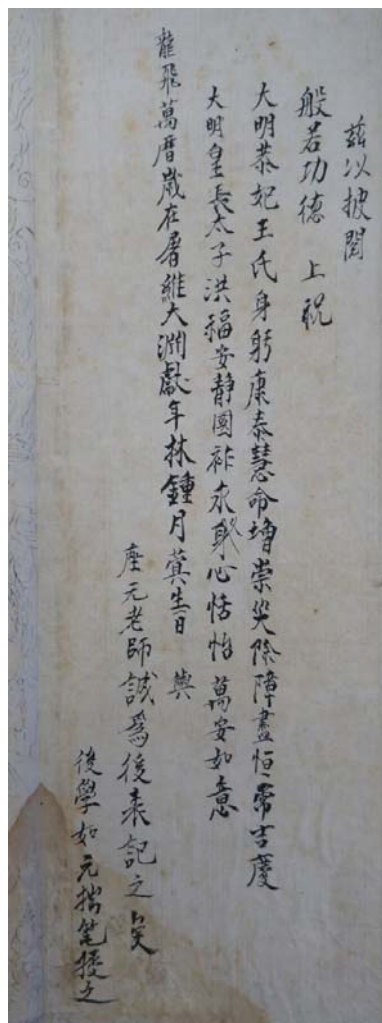 茲以披閱
般若功德 上祝
大明恭妃王氏身躬康泰慧命增崇災除障盡恒常吉慶
大明皇長太子洪福安静國祚永身心恬怡萬安如意
龍飛萬曆歲在屠維大淵獻年林鍾月蓂生日 與
座元老師誠為後表記之
後學如元揣笔授之